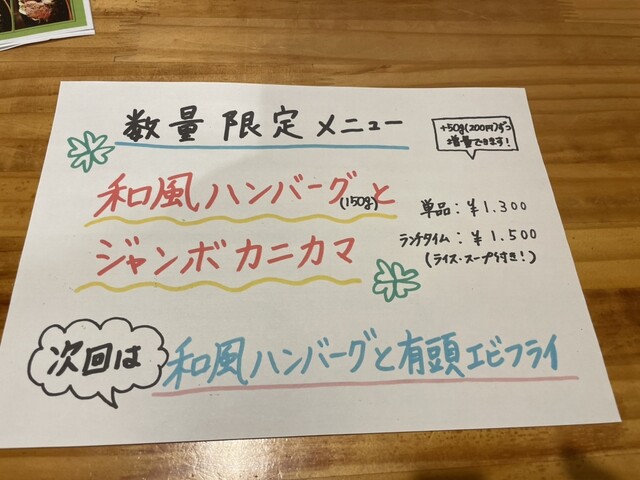 数量限定メニュー
+50g(200円)ずつ
増量できます！
和風ハンバーグ(150g)と
ジャンボカニカマ
単品：¥1.300
ランチタイム：¥1.500
(ライス・スープ付き！)
次回は
和風ハンバーグと有頭エビフライ